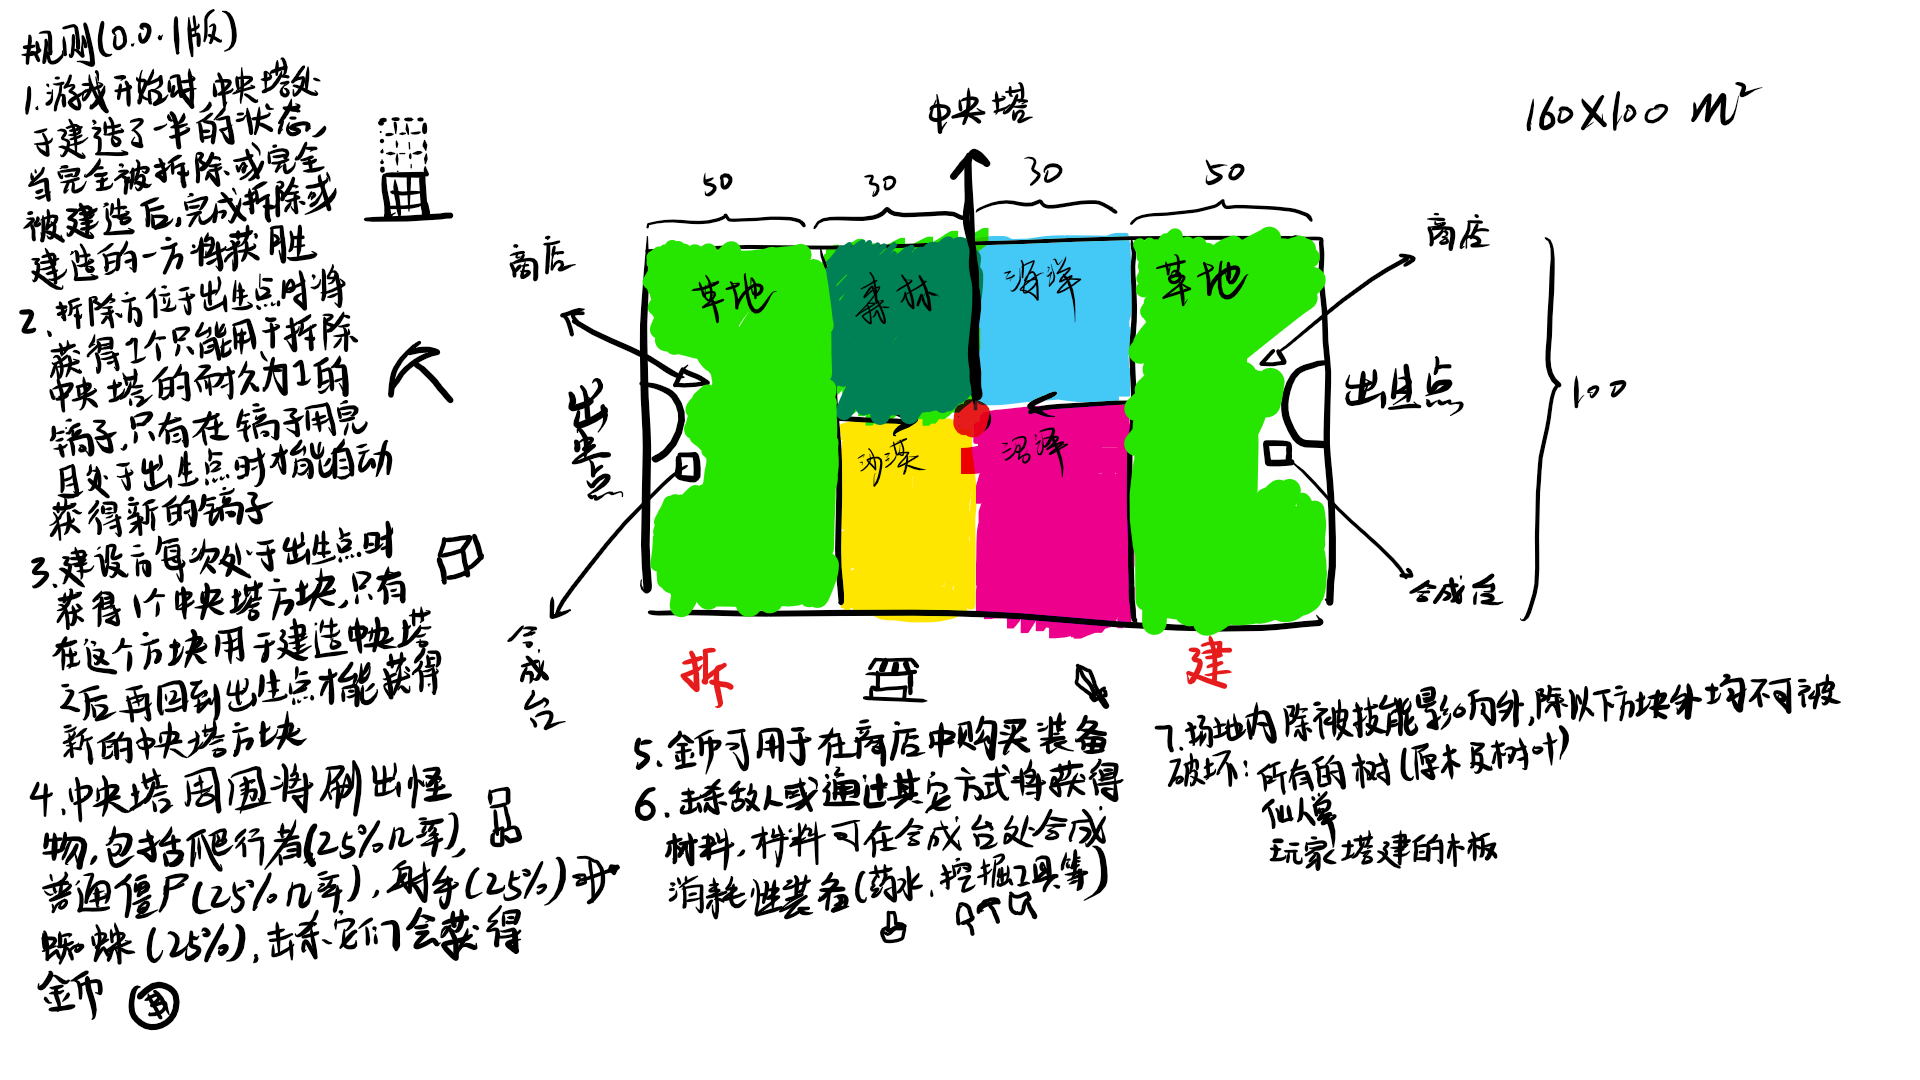 规则(0.0.1版)
1.游戏开始时,中央塔处
于建造了一半的状态,
当完全被拆除或完全
被建造后,完成拆除或
建造的一方将获胜
2.拆除方位于出生点时将
获得1个只能用于拆除
中央塔的耐久为1的
镐子,只有在镐子用完
且处于出生点时才能自动
获得新的镐子
3.建设方每次处于出生点时
获得1个中央塔方块,只有
在这个方块用于建造中央塔
之后再回到出生点才能获得
新的中央塔方块
4.中央塔周围将刷出怪
物,包括爬行者(25%几率),
普通僵尸(25%几率),射手(25%)
蜘蛛(25%),击杀它们会获得
金币
中央塔
160X100 m²
50
30
30
50
商店
商店
草地
森林
海洋
草地
出生点
出生点
100
沙漠
沼泽
合成台
合成台
拆
建
5.金币可用于在商店中购买装备
6.击杀敌人或通过其它方式将获得
材料,材料可在合成台处合成
消耗性装备(药水,挖掘工具等)
7.场地内除被技能影响外,除以下方块外均不可被
破坏:所有的树(原木及树叶)
仙人掌
玩家塔建的木板